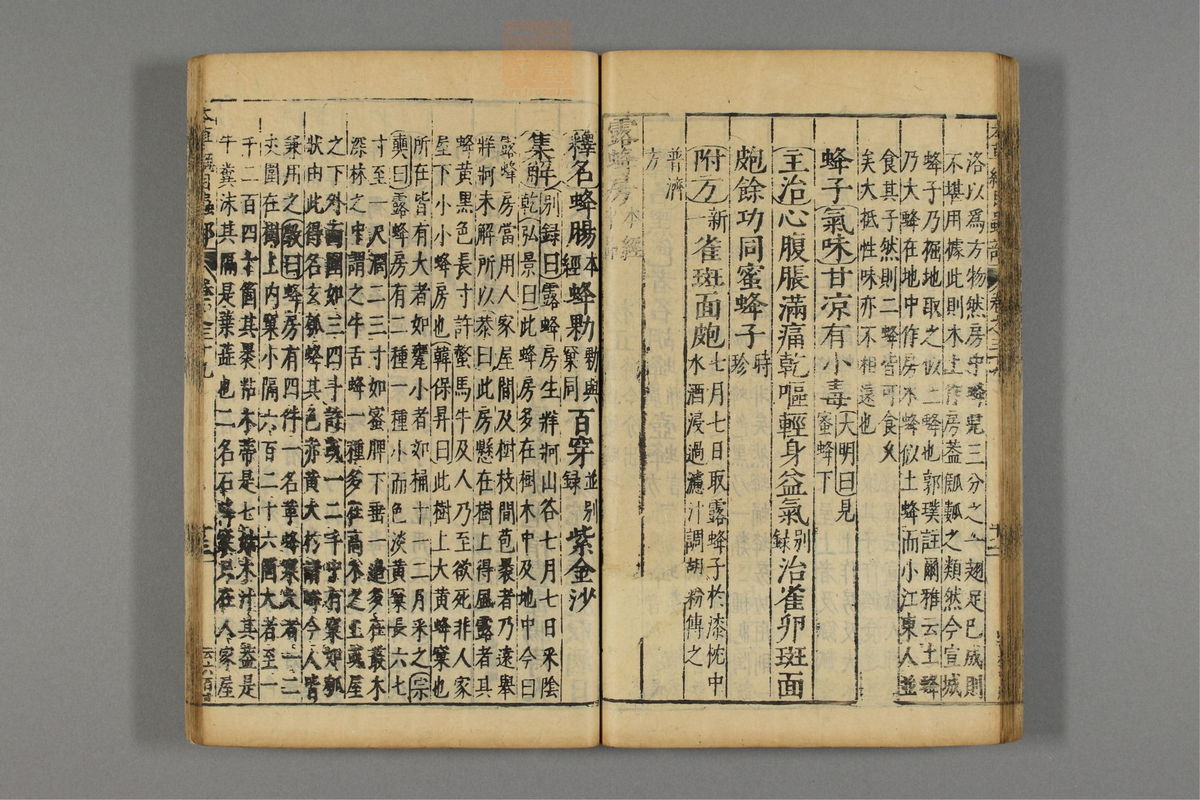 洛以為方物然房中蜂兒三分之一翅足已成則
不堪用據此則木上作房蓋瓠瓢之類然今宣城
蜂子乃掘地取之似土蜂也郭璞註爾雅云土蜂
乃大蜂在地中作房木蜂似土蜂而小江東人並
食其子然則二蜂皆可食久
矣大抵性味亦不相遠也
蜂子氣味甘凉有小毒大明曰見蜜蜂下
主治心腹脹滿痛乾嘔輕身益氣別錄治雀卵斑面
皰餘功同蜜蜂子時珍
附方新一雀斑面皰七月七日取露蜂子於漆怳中水酒浸過濾汁調胡粉傅之
普濟方
露蜂房本經
釋名蜂腸本經蜂䰝䰝與窠同百穿並別錄紫金沙
集解別錄曰露蜂房生牂牁山谷七月七日采陰
乾弘景曰此蜂房多在樹木中及地中今曰
露蜂房當用人家屋間及樹枝間苞裹者乃遠舉
牂牁未解所以恭曰此房懸在樹上得風露者其
蜂黃黑色長寸許螫馬牛及人乃至欲死非人家
屋下小小蜂房也韓保昇曰此樹上大黃蜂窠也
所在皆有大者如甕小者如桶十一二月采之宗
奭曰露蜂房有二種一種小而色淡黃窠長六七
寸至一尺濶二三寸如蜜脾下垂一邊多在叢木
深林之中謂之牛舌蜂一種多在高木之上或屋
之下外面圍如三四斗許或一二斗中有窠如瓠
狀由此得名玄瓠蜂其色赤黃大於諸蜂今人皆
兼用之斆曰蜂房有四件一名革蜂窠大者一二
丈圍在樹上內窠小隔六百二十六箇大者至一
千二百四十箇其裹粘木蒂是七姑木汁其蓋是
牛糞沫其隔是葉蕊也二名石蜂窠只在人家屋